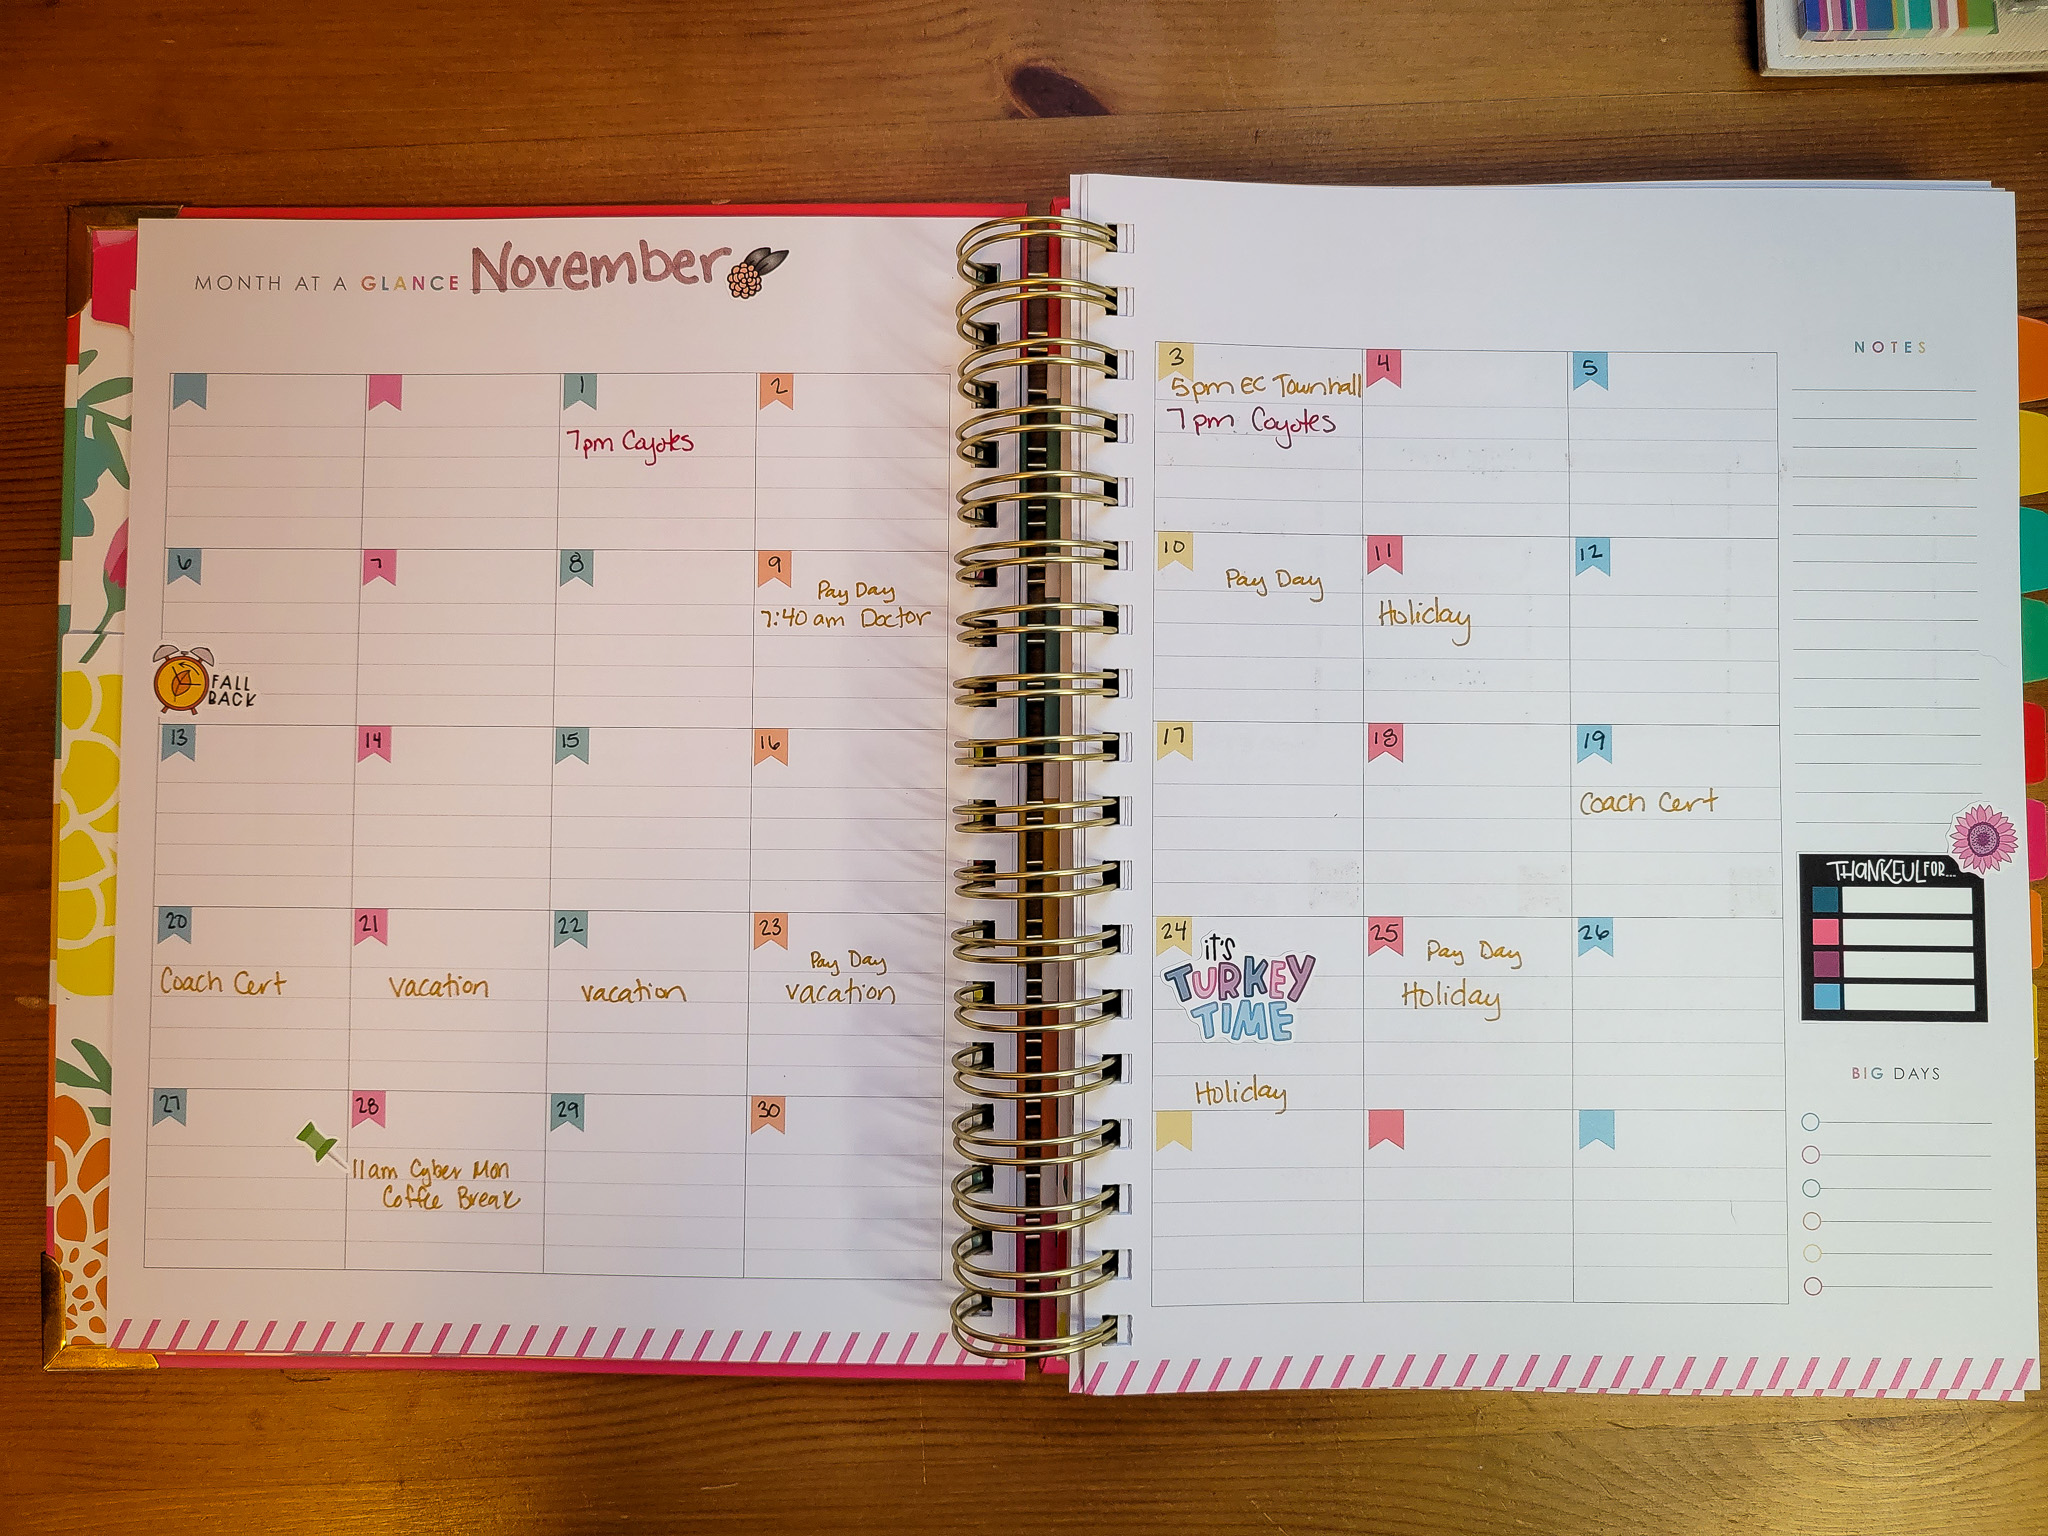 MONTH AT A GLANCE November
1
7pm Coyotes
2
3
5pm EC Townhall
7pm Coyotes
4
5
6
FALL
BACK
7
8
9
Pay Day
7:40 am Doctor
10
Pay Day
11
Holiday
12
13
14
15
16
17
18
19
Coach Cert
20
Coach Cert
21
vacation
22
vacation
23
Pay Day
vacation
24
it's
TURKEY
TIME
Holiday
25
Pay Day
Holiday
26
27
28
11am Cyber Mon
Coffee Break
29
30
NOTES
THANKFUL FOR...
BIG DAYS